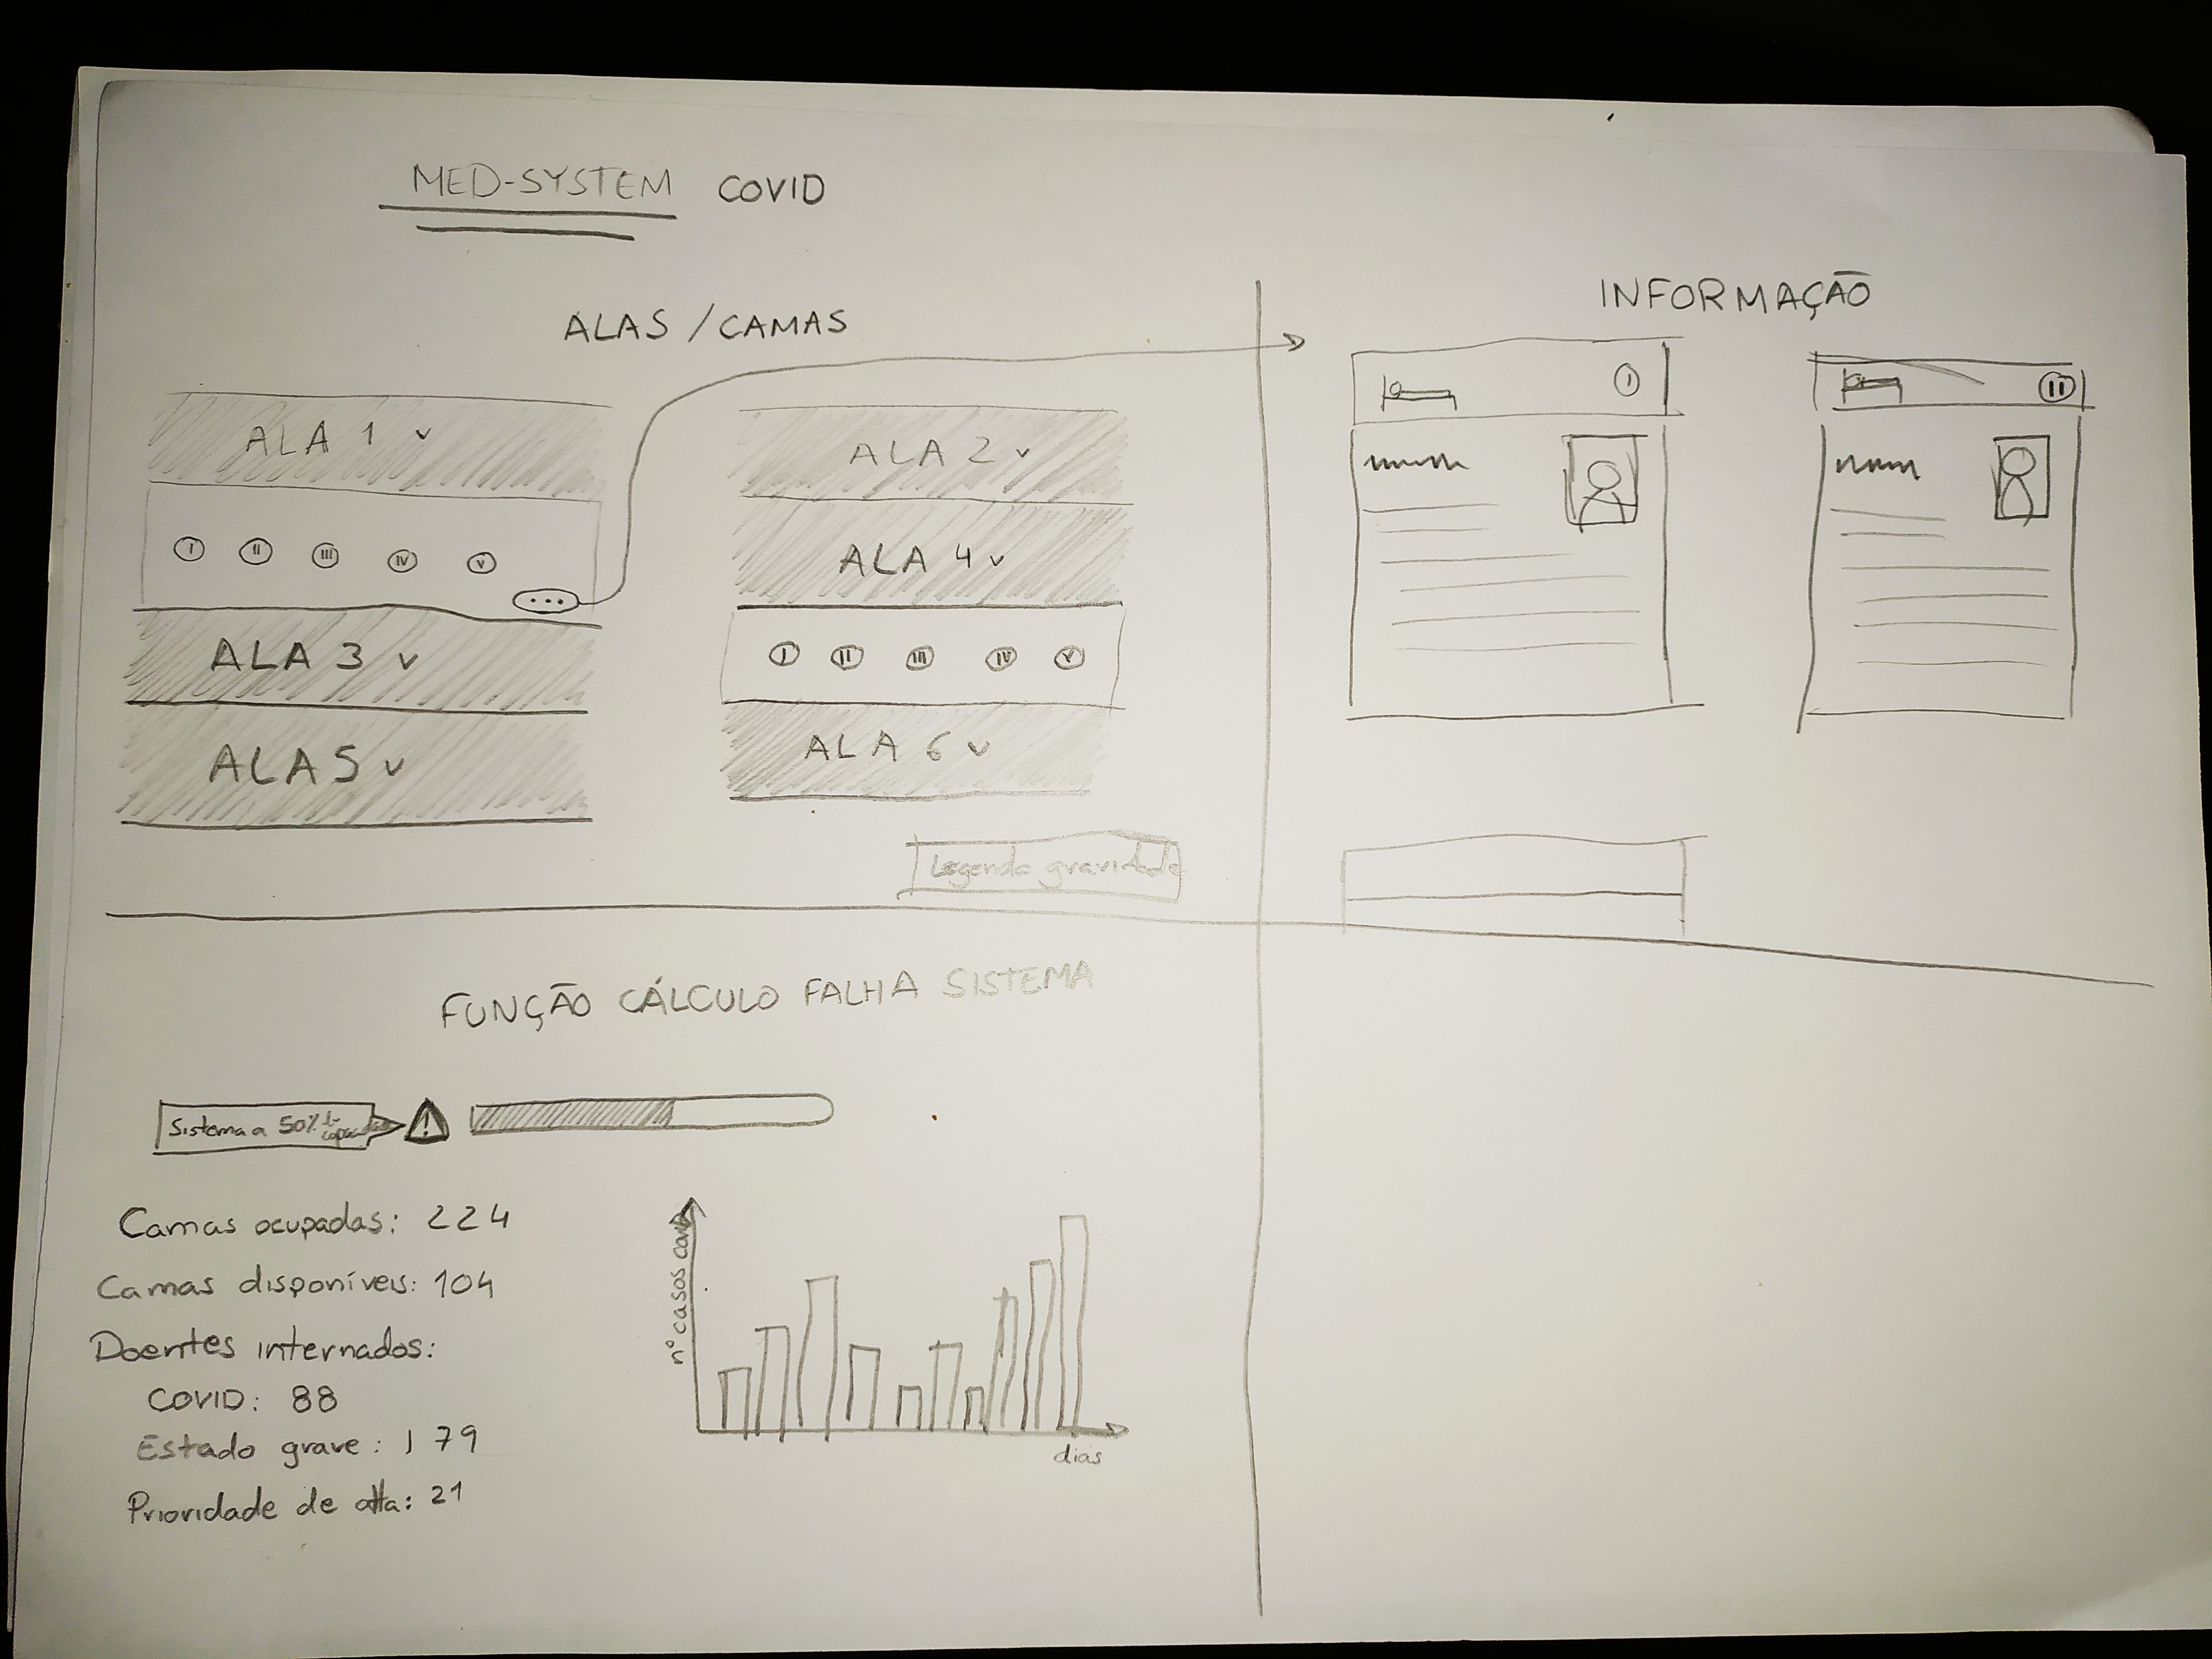 MED-SYSTEM COVID
ALAS / CAMAS
ALA 1
I II III IV V
...
ALA 3
ALA 5
ALA 2
ALA 4
I II III IV V
ALA 6
Legenda gravidade
INFORMAÇÃO
I
II
FUNÇÃO CÁLCULO FALHA SISTEMA
Sistema a 50% de
!
Camas ocupadas: 224
Camas disponíveis: 104
Doentes internados:
COVID: 88
Estado grave: 179
Prioridade de alta: 21
nº casos covid
dias